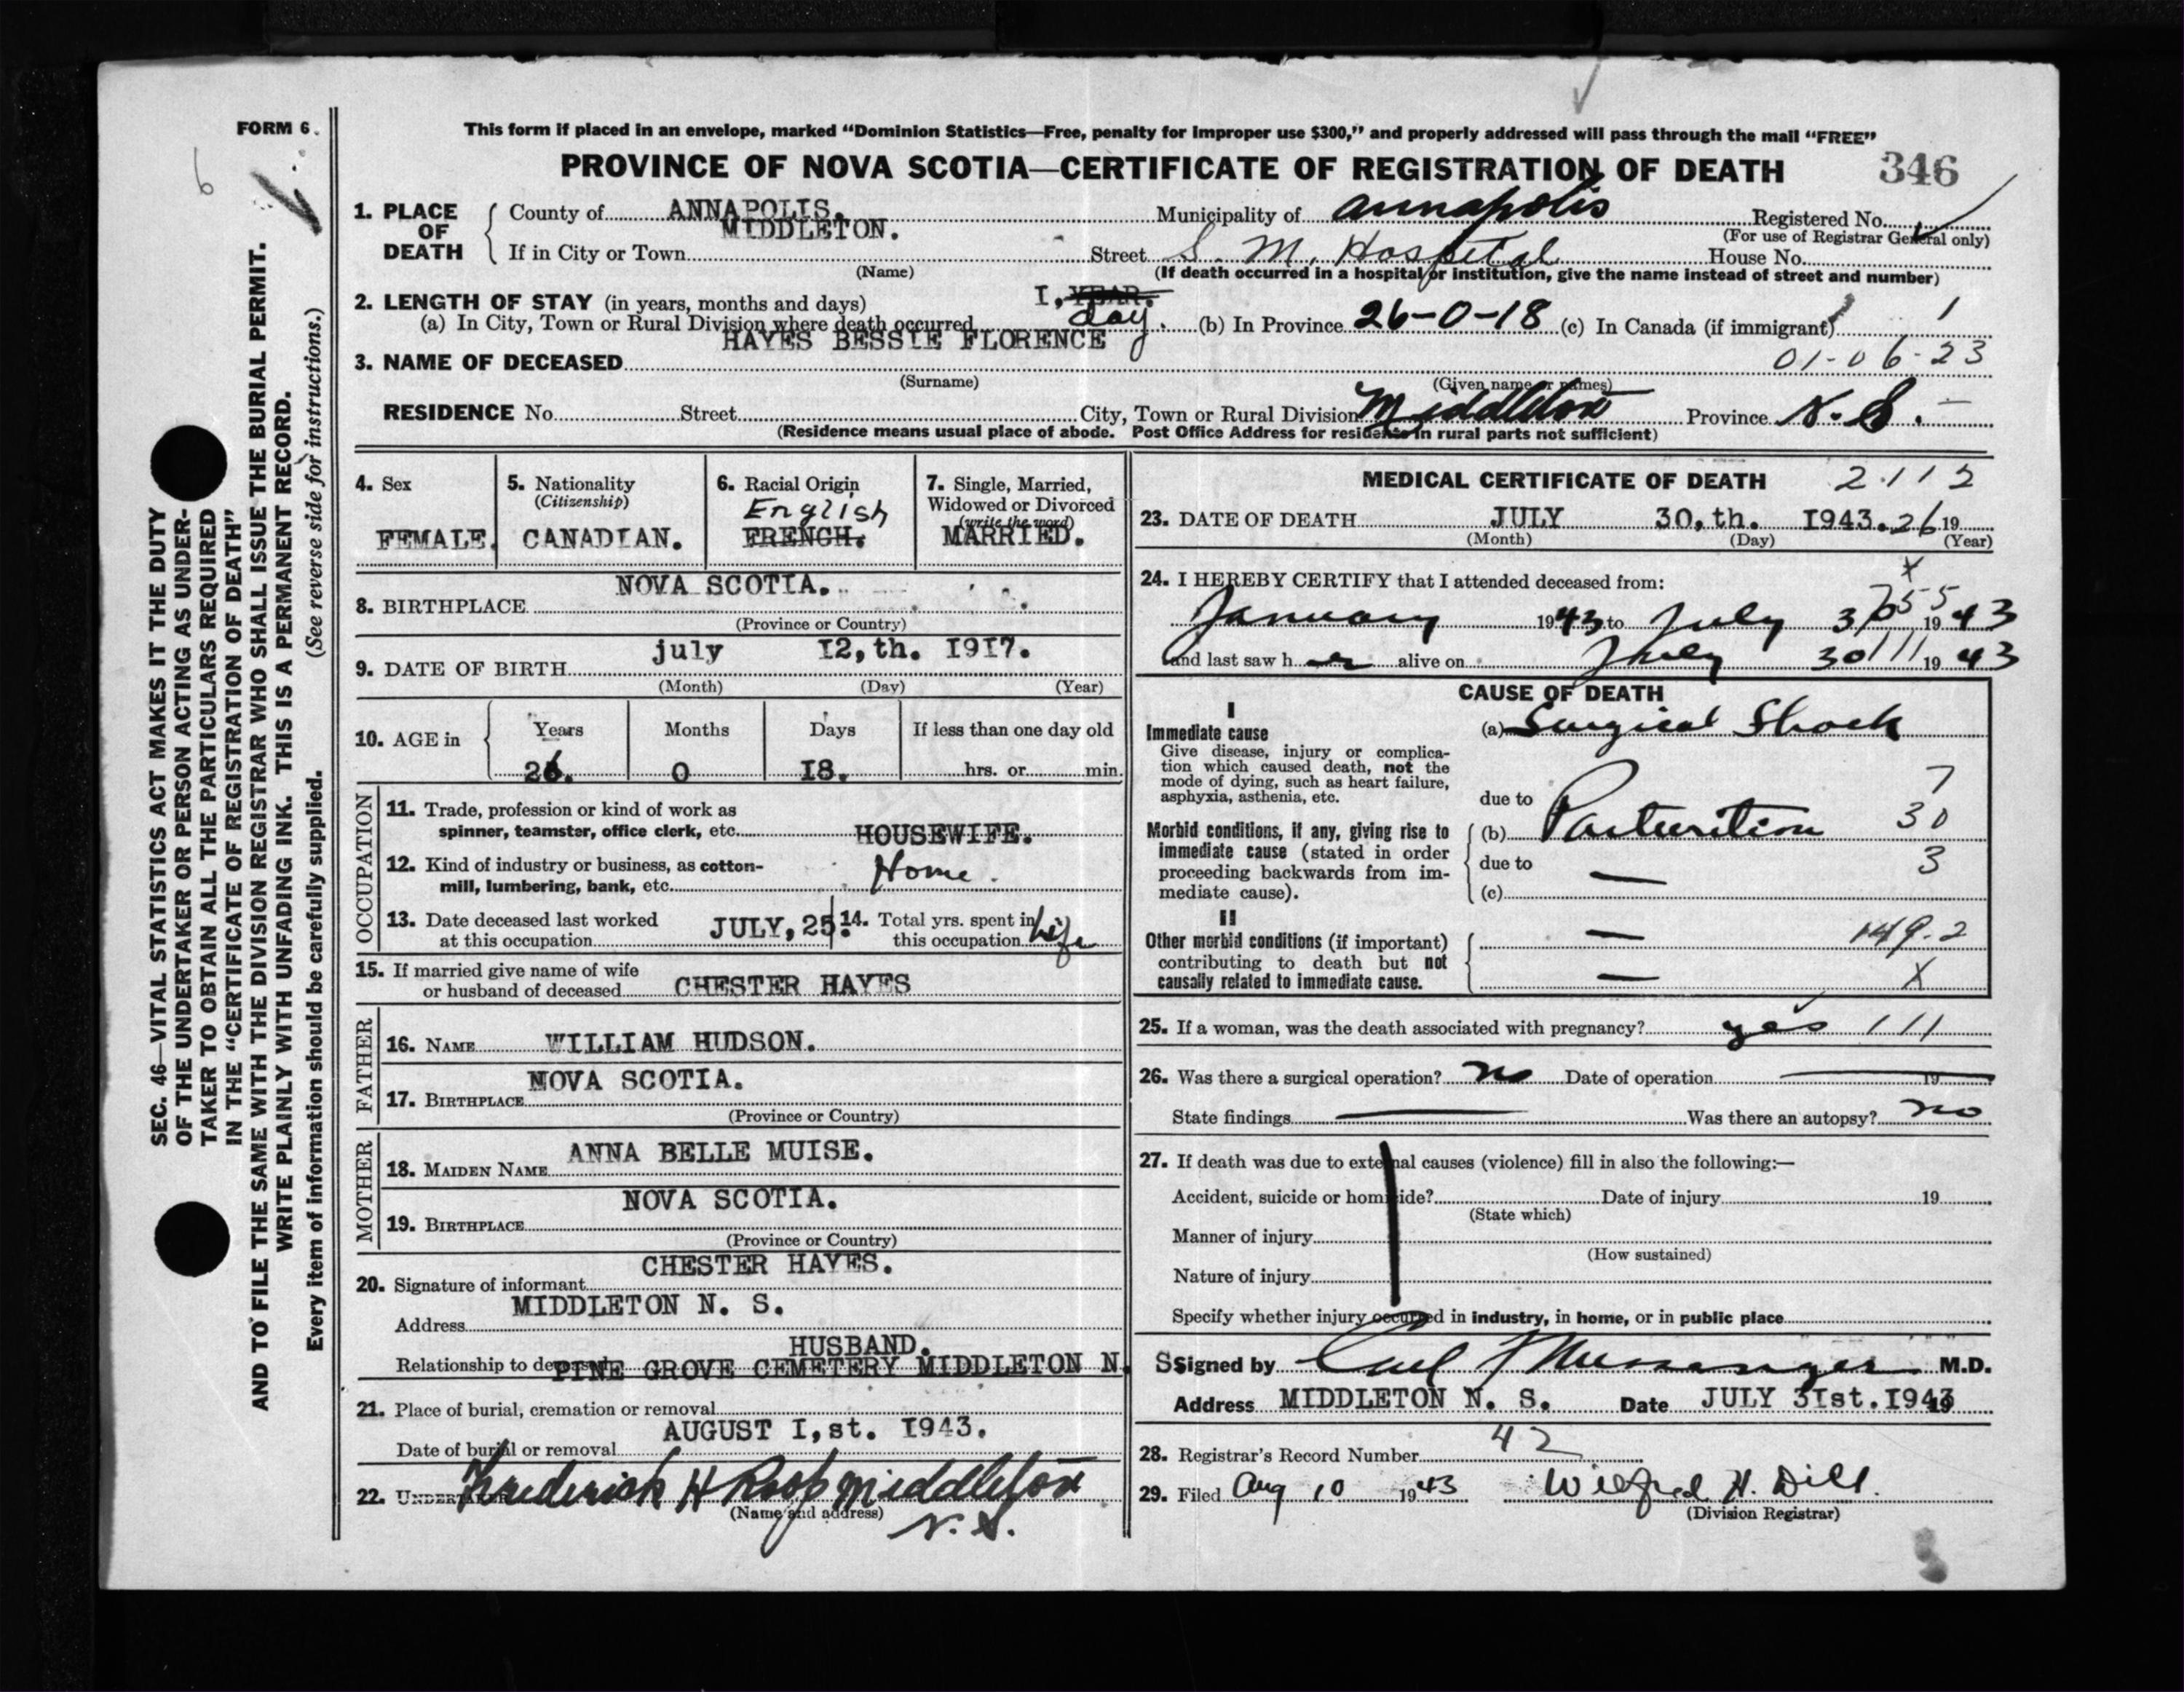 FORM 6.
6
This form if placed in an envelope, marked “Dominion Statistics—Free, penalty for improper use $300,” and properly addressed will pass through the mail “FREE”
PROVINCE OF NOVA SCOTIA—CERTIFICATE OF REGISTRATION OF DEATH 346
SEC. 46—VITAL STATISTICS ACT MAKES IT THE DUTY
OF THE UNDERTAKER OR PERSON ACTING AS UNDER-
TAKER TO OBTAIN ALL THE PARTICULARS REQUIRED
IN THE “CERTIFICATE OF REGISTRATION OF DEATH”
AND TO FILE THE SAME WITH THE DIVISION REGISTRAR WHO SHALL ISSUE THE BURIAL PERMIT.
WRITE PLAINLY WITH UNFADING INK. THIS IS A PERMANENT RECORD.
Every item of information should be carefully supplied. (See reverse side for instructions.)
1. PLACE OF DEATH
County of ANNAPOLIS. Municipality of Annapolis Registered No.
(For use of Registrar General only)
If in City or Town MIDDLETON. Street S. M. Hospital House No.
(Name) (If death occurred in a hospital or institution, give the name instead of street and number)
2. LENGTH OF STAY (in years, months and days) I, YEAR.
(a) In City, Town or Rural Division where death occurred day. (b) In Province 26-0-18 (c) In Canada (if immigrant) 1
HAYES BESSIE FLORENCE
3. NAME OF DECEASED 01-06-23
(Surname) (Given name or names)
RESIDENCE No. Street City, Town or Rural Division Middleton Province N.S.
(Residence means usual place of abode. Post Office Address for residents in rural parts not sufficient)
4. Sex
FEMALE.
5. Nationality
(Citizenship)
CANADIAN.
6. Racial Origin
English
FRENCH.
7. Single, Married,
Widowed or Divorced
(write the word)
MARRIED.
8. BIRTHPLACE NOVA SCOTIA.
(Province or Country)
9. DATE OF BIRTH july 12,th. 1917.
(Month) (Day) (Year)
10. AGE in Years Months Days If less than one day old
26. 0 18. hrs. or min.
OCCUPATION
11. Trade, profession or kind of work as
spinner, teamster, office clerk, etc. HOUSEWIFE.
12. Kind of industry or business, as cotton-
mill, lumbering, bank, etc. Home.
13. Date deceased last worked
at this occupation JULY, 25.
14. Total yrs. spent in
this occupation Life
15. If married give name of wife
or husband of deceased CHESTER HAYES
FATHER
16. NAME WILLIAM HUDSON.
17. BIRTHPLACE NOVA SCOTIA.
(Province or Country)
MOTHER
18. MAIDEN NAME ANNA BELLE MUISE.
19. BIRTHPLACE NOVA SCOTIA.
(Province or Country)
20. Signature of informant CHESTER HAYES.
Address MIDDLETON N. S.
Relationship to deceased HUSBAND.
PINE GROVE CEMETERY MIDDLETON N. S
21. Place of burial, cremation or removal
Date of burial or removal AUGUST I,st. 1943.
22. UNDERTAKER Frederick H Roop Middleton
(Name and address) N.S.
MEDICAL CERTIFICATE OF DEATH 2112
23. DATE OF DEATH JULY 30,th. 1943. 26 19
(Month) (Day) (Year)
24. I HEREBY CERTIFY that I attended deceased from: x
January 1943 to July 30 1943
755
and last saw her alive on July 30 111 1943
CAUSE OF DEATH
I
Immediate cause
Give disease, injury or complica-
tion which caused death, not the
mode of dying, such as heart failure,
asphyxia, asthenia, etc.
(a) Surgical Shock
due to 7
Morbid conditions, if any, giving rise to
immediate cause (stated in order
proceeding backwards from im-
mediate cause).
(b) Parturition 30
due to — 3
(c)
II
Other morbid conditions (if important)
contributing to death but not
causally related to immediate cause.
— 149.2
— X
25. If a woman, was the death associated with pregnancy? yes 111
26. Was there a surgical operation? no Date of operation 19
State findings Was there an autopsy? no
27. If death was due to external causes (violence) fill in also the following:—
Accident, suicide or homicide? Date of injury 19
(State which)
Manner of injury
(How sustained)
Nature of injury
Specify whether injury occurred in industry, in home, or in public place
Signed by Carl Messenger M.D.
Address MIDDLETON N. S. Date JULY 31st. 1943 19
28. Registrar's Record Number 42
29. Filed Aug 10 1943 Wilfred H. Dill.
(Division Registrar)